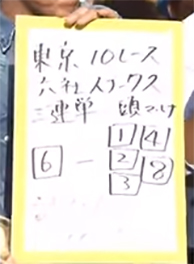 東京 10レース
六社Sフクス
三連単 頭つけ
1 4
6 - 2 8
3